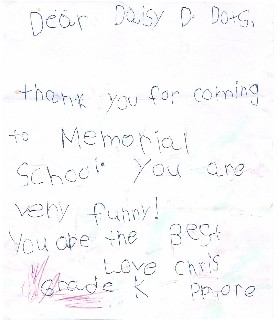 Dear Daisy D. Dots,
thank you for coming
to Memorial
School. You are
very funny!
You are the Best
Love Chris
Grade K